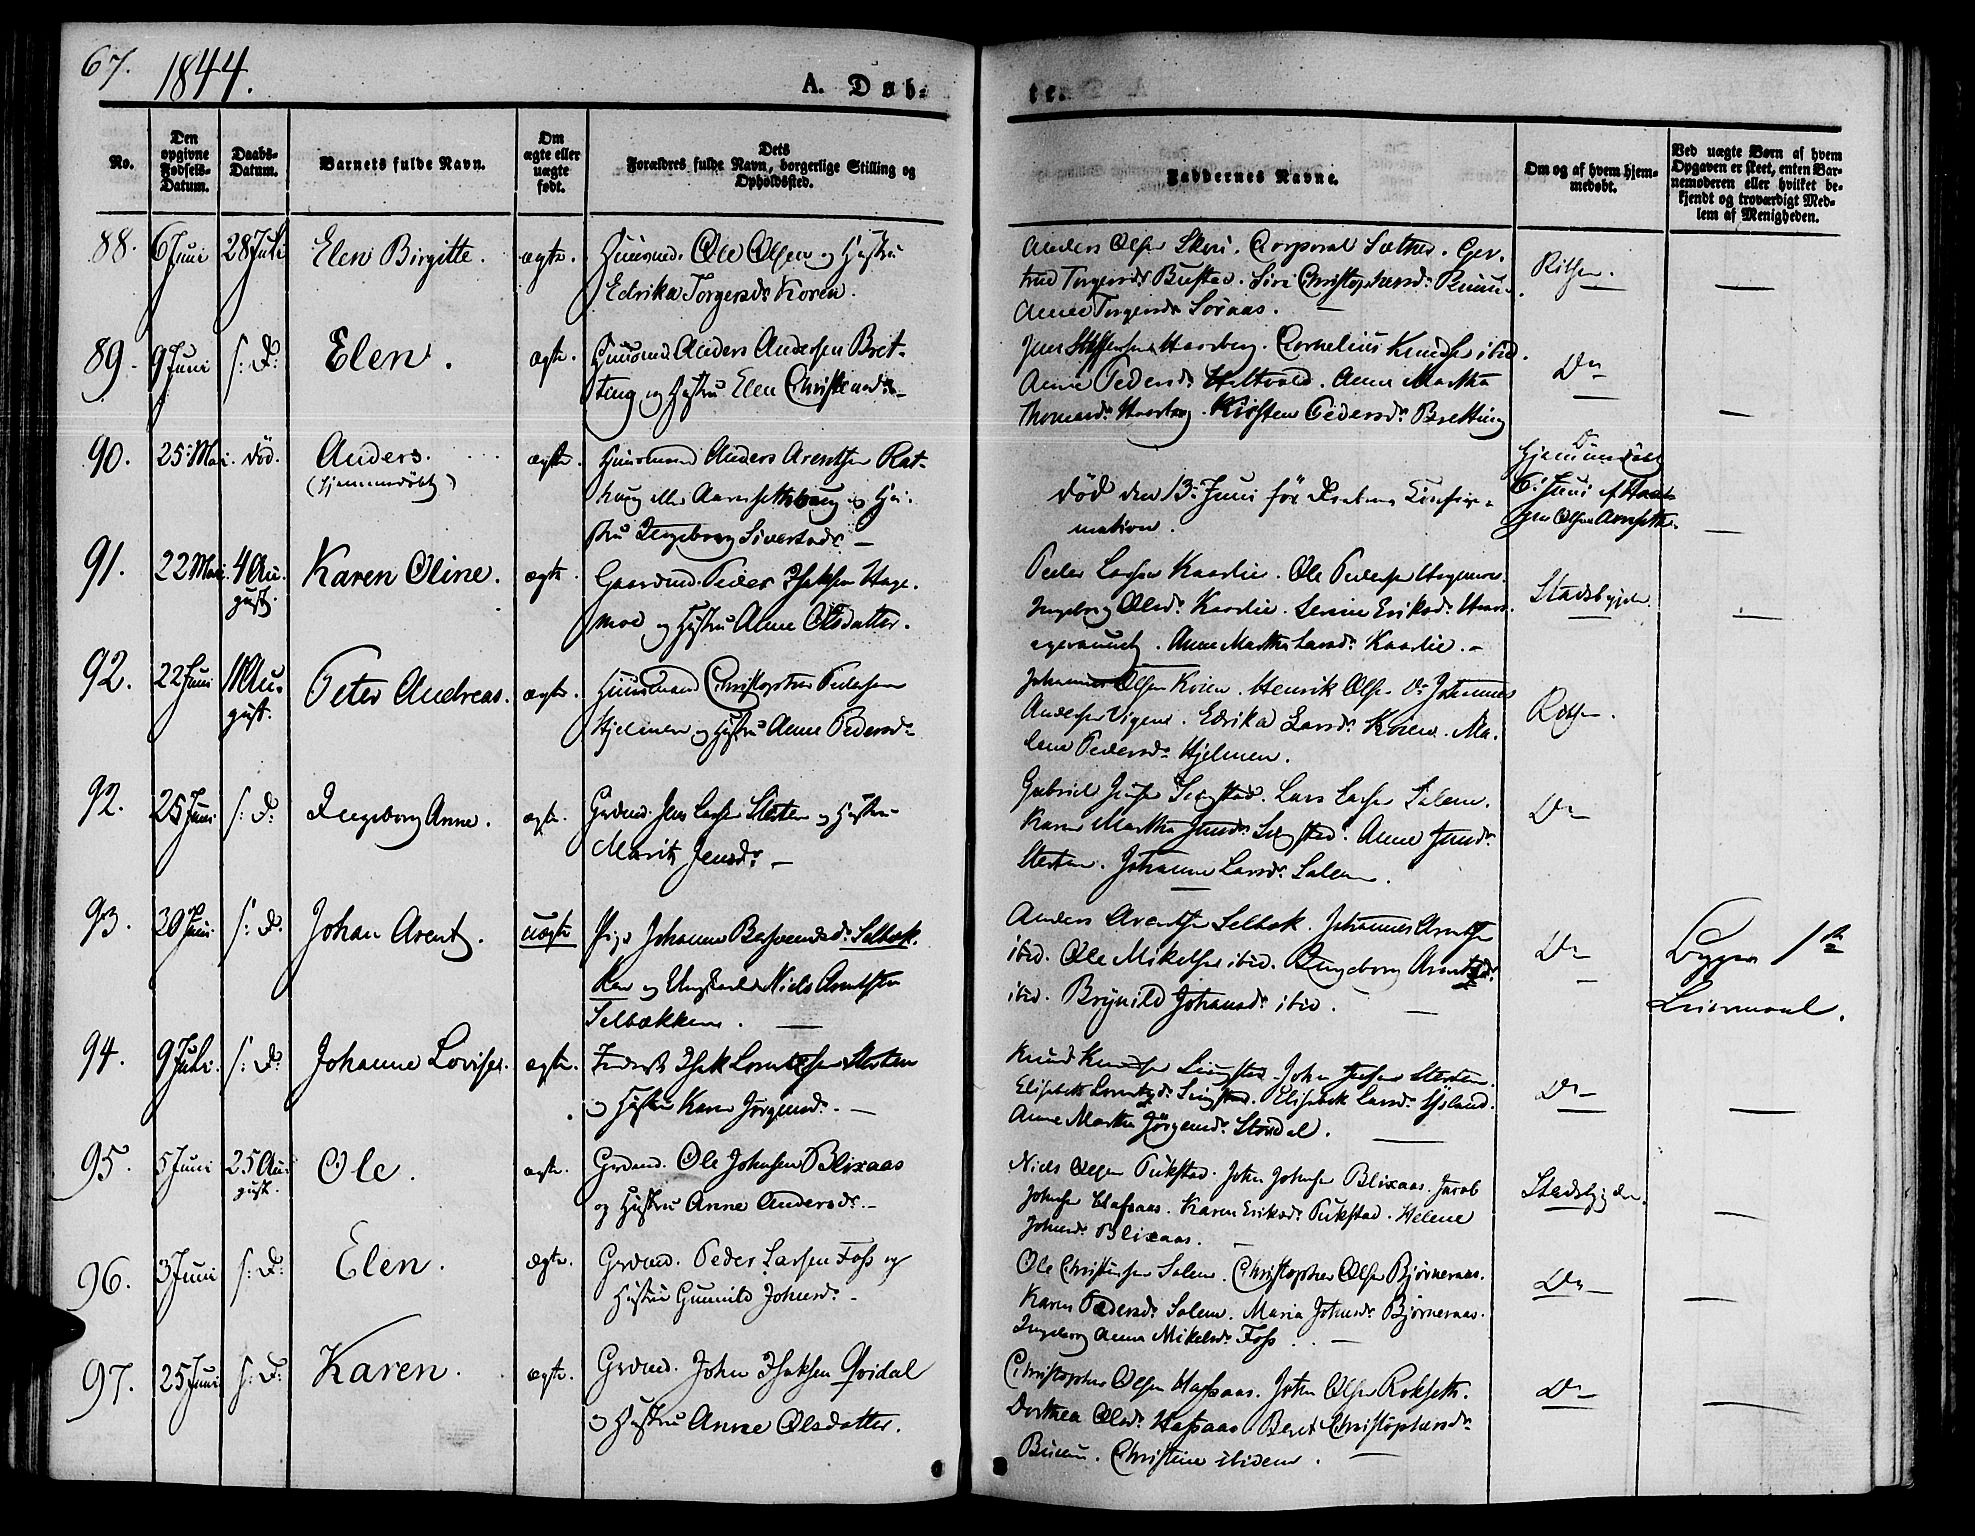 67.
1844.
A. Døb-
te.
No.
Den opgivne Fødsels-Datum.
Daabs-Datum.
Barnets fulde Navn.
Om ægte eller uægte født.
Dets Forældres fulde Navn, borgerlige Stilling og Opholdssted.
Faddernes Navne.
Om og af hvem hjemmedøbt.
Ved uægte Børn af hvem Opgaven er skeet, enten Barnemoderen eller hvilket bekjendt og troværdigt Medlem af Menigheden.
88. 6 Juni 28 Juli Elen Birgitte. ægte. Huusmd. Ole Olsen og Hustru
Edrika Torgersdr Koren.
Anders Olsen Corporal Sæther. Ger-
trud Torgersdr Bustad. Siri Christophersdr
Anne Torgersdr Soraas.
Ritsen.
89. 9 Juni s: D: Elen. ægte. Huusmd. Anders Andersen Bret-
ting og Hustru Elen
Jens Steffensen Haarberg. Cornelius Knudsen ibid.
Anne Pedersdr Anne Martha
Thomasdr Haarberg. Kirsten Pedersdr Bretting
Do
90. 25 Mai. død. Anders.
(hjemmedøbt)
ægte. Huusmand Anders Arentsen Rat-
haug eller og Hu-
stru Ingeborg Sivertsdr. —
død den 13 Juni før Daabens Confir-
mation.
Hjemmedøbt
6 Juni af
Olsen
91. 22 Mai. 4 Au-
gust.
Karen Oline. ægte. Gaardmd. Peder Isaksen Hage-
moe og Hustru Anne Olsdatter.
Peder Larsen Kaarlie. Ole Pedersen Hagemoe.
Ingeborg Olsdr Kaarlie. Eriksdr
Anne Martha Larsdr Kaarlie. —
Stadsbygden.
92. 22 Juni 11 Au-
gust.
Peter Andreas. ægte. Huusmand Christopher Pedersen
Hjelmen og Hustru Anne Pedersdr
Johannes Olsen Koien. Henrik Olsen Do Johannes
Andersen Vigens. Edrika Larsdr Koien. Ma-
lene Pedersdr Hjelmen.
92. 25 Juni s: D: Ingeborg Anne. ægte. Grdmd. Jens Larsen Sterten og Hustru
Marit Jensdr. —
Gabriel Jensen Singstad. Lars Larsen Salem.
Karen Martha Jensdr Singstad. Anne Jensdr
Sterten. Johanne Larsdr Salem.
Do
93. 30 Juni s: D: Johan Arent. uægte Pige Johanna Selbæk.
og Ungkarl Niels Arentsen
Selbækken.
Anders Arentsen Selbæk. Johannes Arentsen
ibid. Ole Mikelsen ibid. Ingeborg Arentsdr
ibid. Brynild Johansdr ibid.
Do
Begges 1ste
Leiermaal.
94. 9 Juli. s: D: Johanne Lovise. ægte. Isak Lorentzen Sterten
og Hustru Karen Jørgensdr. —
Knud Knudsen Singstad. John Jensen Sterten.
Elisabeth Lorentzdr Singstad. Elisabeth Larsdr
Anne Martha Jørgensdr Stordal.
Do
95. 5 Juni 25 Au-
gust.
Ole. ægte. Grdmd. Ole Johnsen Blixaas
og Hustru Anne Andersdr. —
Niels Olsen Pukstad. John Johnsen Blixaas. Jacob
Johnsen Hafsaas. Karen Eriksdr Pukstad. Helene
Johnsdr Blixaas.
Stadsbygden.
96. 3 Juni s: D: Elen. ægte. Grdmd. Peder Larsen Foss og
Hustru Gunnild Johnsdr. —
Ole Christensen Salem. Christopher Olsen Bjørneraas.
Karen Pedersdr Salem. Maria Johnsdr Bjørneraas.
Ingeborg Anna Mikelsdr Foss.
Do
97. 25 Juni s: D: Karen. ægte. Grdmd. John Isaksen Qvidal
og Hustru Anne Olsdatter.
Christopher Olsen Hafsaas. John Olsen Rokseth.
Dorthea Olsdr Hafsaas Beret Christophersdr
Christine ibidem.
Do